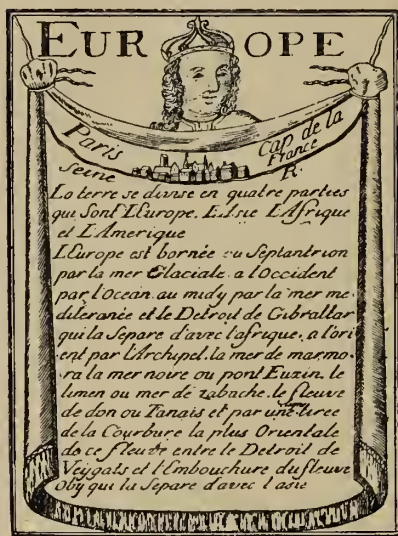 EUROPE
Paris
cap de la
France
Seine R.
La terre se divise en quatre parties
qui Sont L'Europe. L'Asie L'Afrique
et L'Amerique
L'Europe est bornée au Septantrion
par la mer Glaciale. a l'Occident
par l'Ocean. au midy par la mer me
diteranée et le Detroit de Gibraltar
qui la Separe d'avec lafrique. a l'ori
ent par l'Archipel. la mer de marmo
ra la mer noire ou pont Euxin. le
limen ou mer de zabache. le fleuve
de don ou Tanais et par une tiree
de la Courbure la plus Orientale
de ce fleuve entre le Detroit de
Veigats et l'Embouchure du fleuve
Oby qui la Separe d'avec l'asie